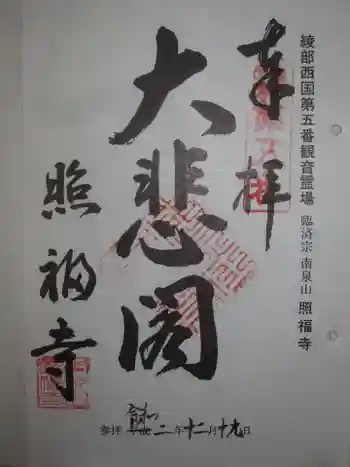 綾部西国第五番観音霊場 臨済宗 南泉山 照福寺
奉拝
大悲閣
照福寺
参拝 令和 二年十二月十九日